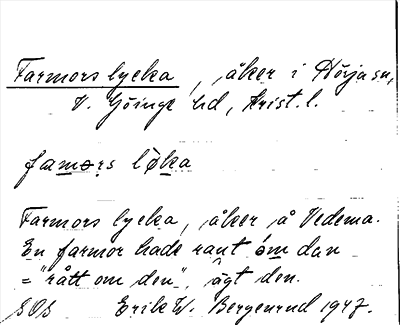 Farmors lycka, åker i Hörja sn,
V. Göinge hd, Krist. l.
famors løka
Farmors lycka, åker å Vedema.
En farmor hade raut om dan
= "rått om den", ägt den.
SOS Erik W. Bergenrud 1947.